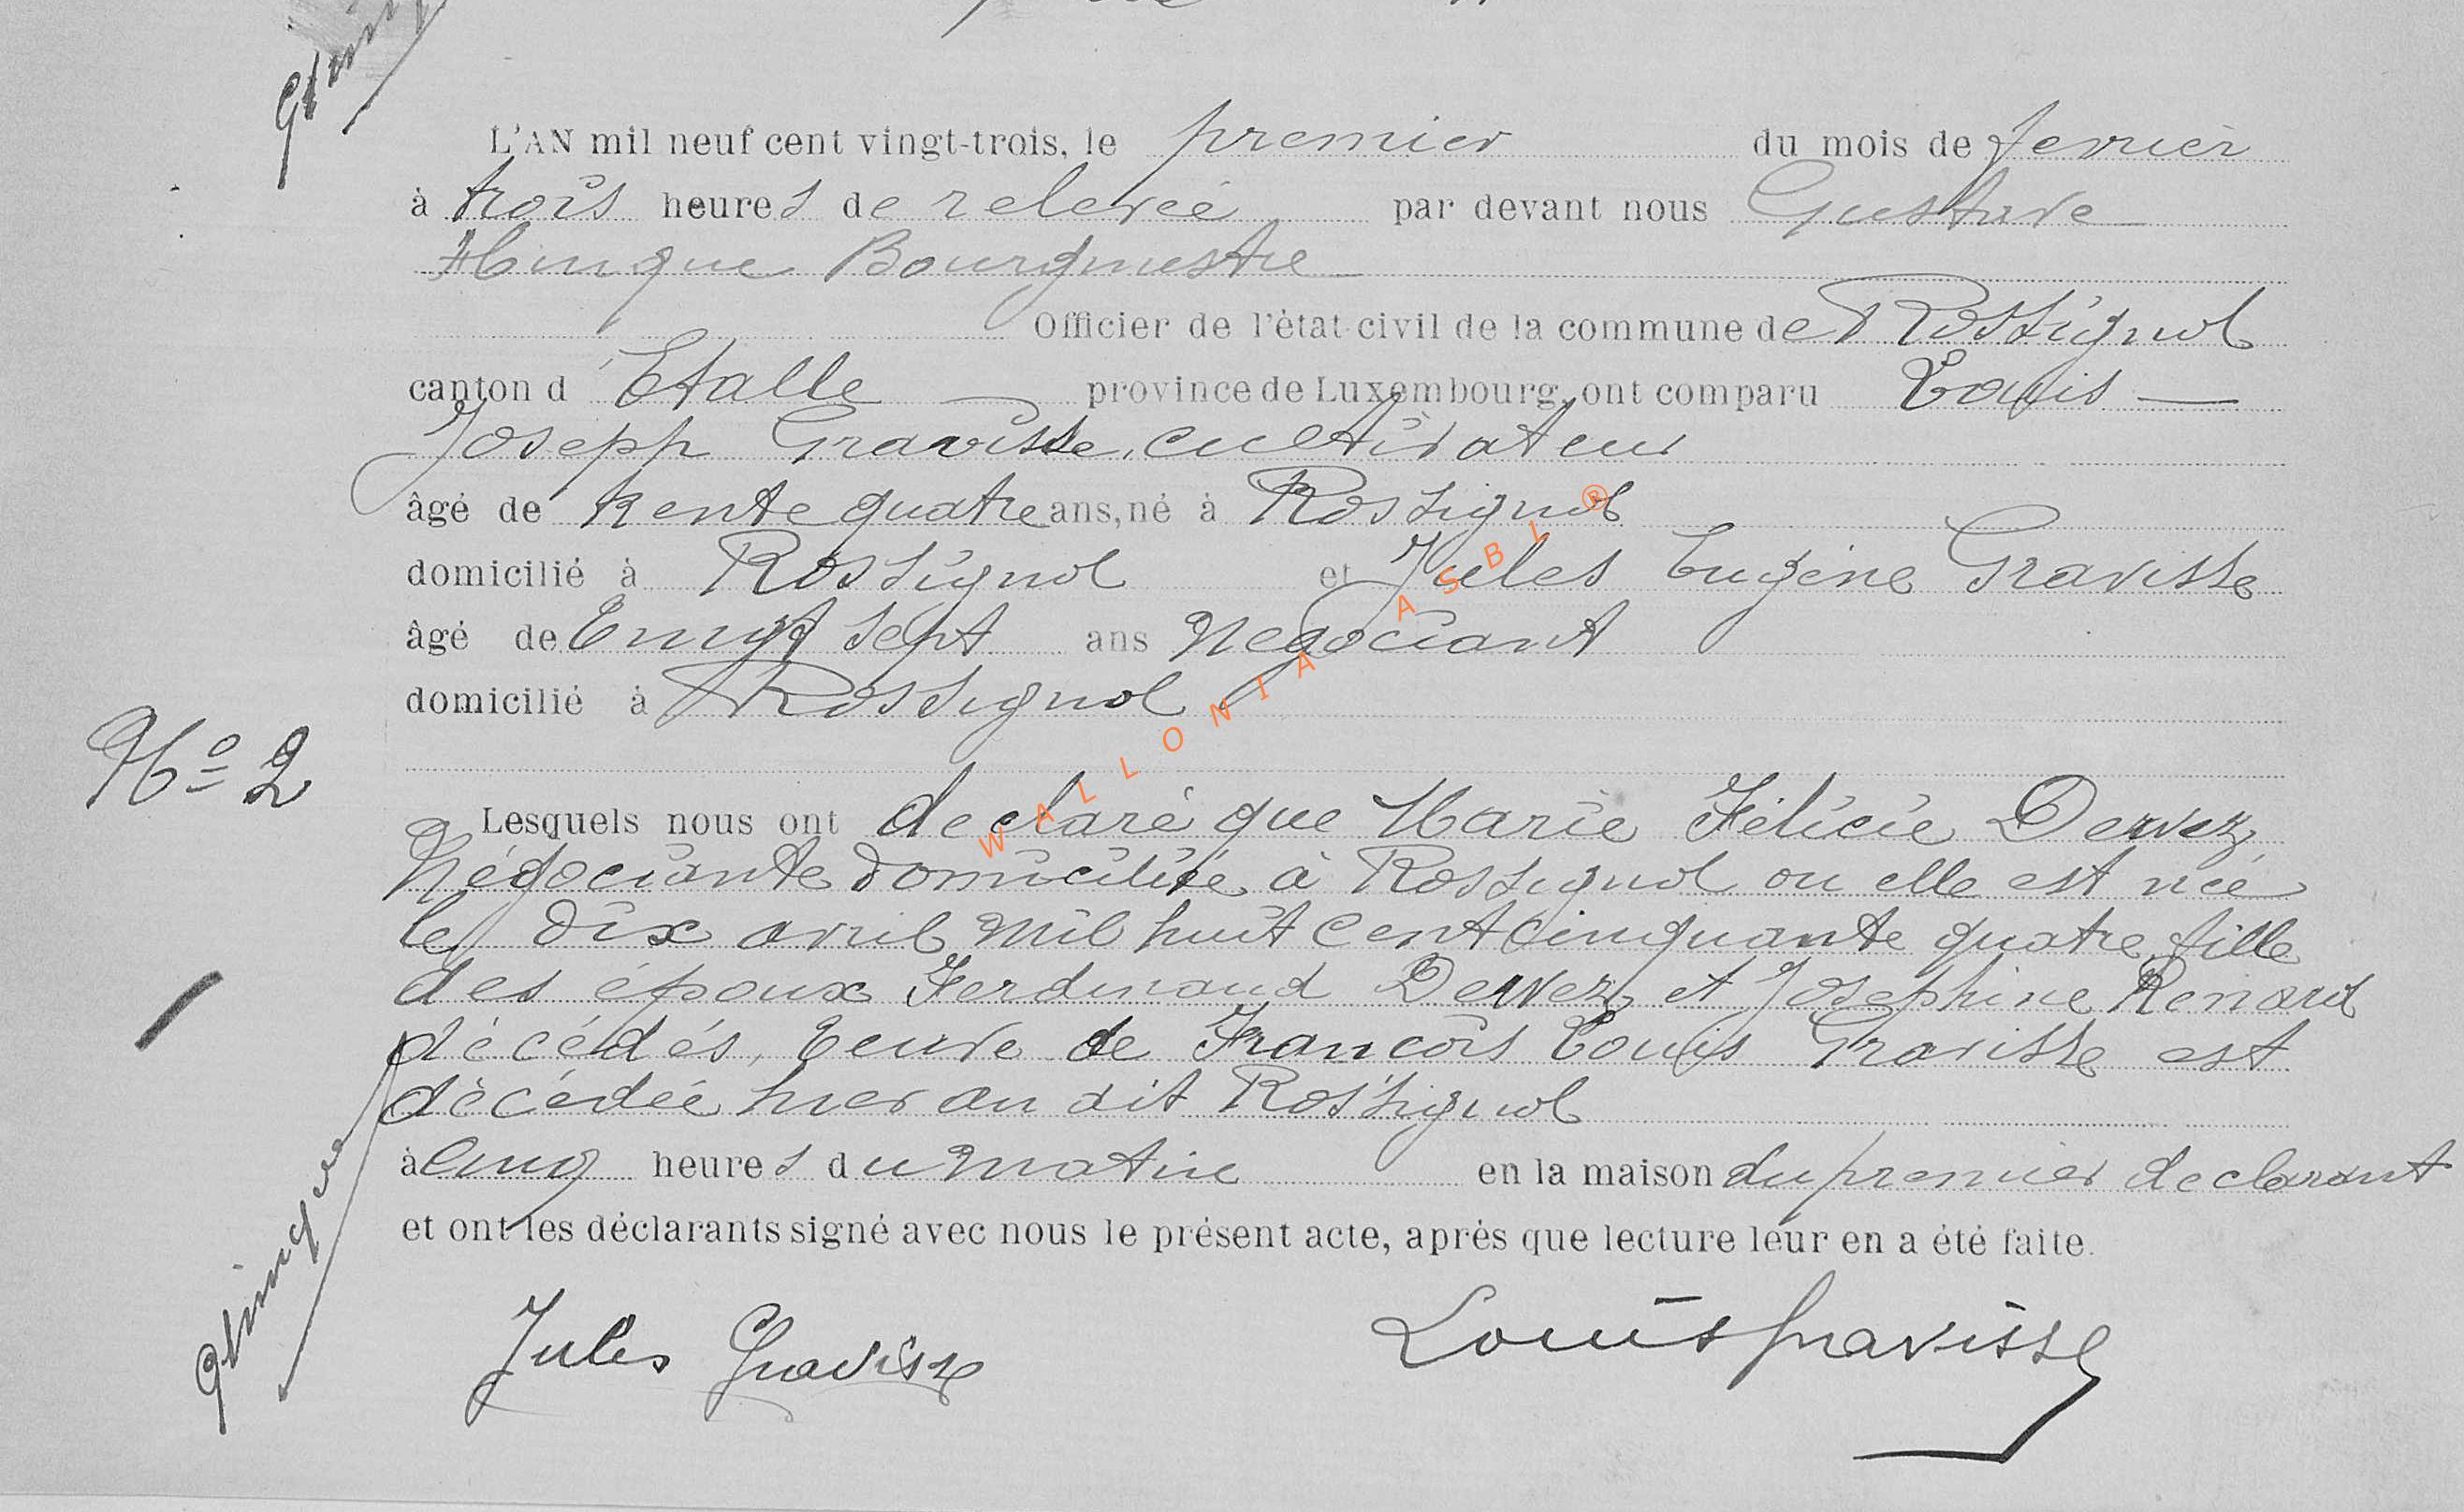 L'AN mil neuf cent vingt-trois, le premier du mois de fevrier
à trois heures de relevée par devant nous Gustave
Hinque Bourgmestre
Officier de l'état-civil de la commune de Rossignol
canton d'Etalle province de Luxembourg, ont comparu Louis
Joseph Gravisse, cultivateur
âgé de trente quatre ans, né à Rossignol
domicilié à Rossignol et Jules Eugène Gravisse
âgé de Vingt sept ans Négociant
domicilié à Rossignol
No 2
Lesquels nous ont declaré que Marie Félicie Dervez
Négociante domiciliée à Rossignol ou elle est née
le dix avril mil huit cent cinquante quatre, fille
des époux Ferdinand Dervez et Joséphine Renard
décédés, Veuve de François Louis Gravisse est
décédée hier au dit Rossignol
à cinq heures du matin en la maison du premier declarant
et ont les déclarants signé avec nous le présent acte, après que lecture leur en a été faite.
Jules Gravisse Louis Gravisse
WALLONIA ASBL ®